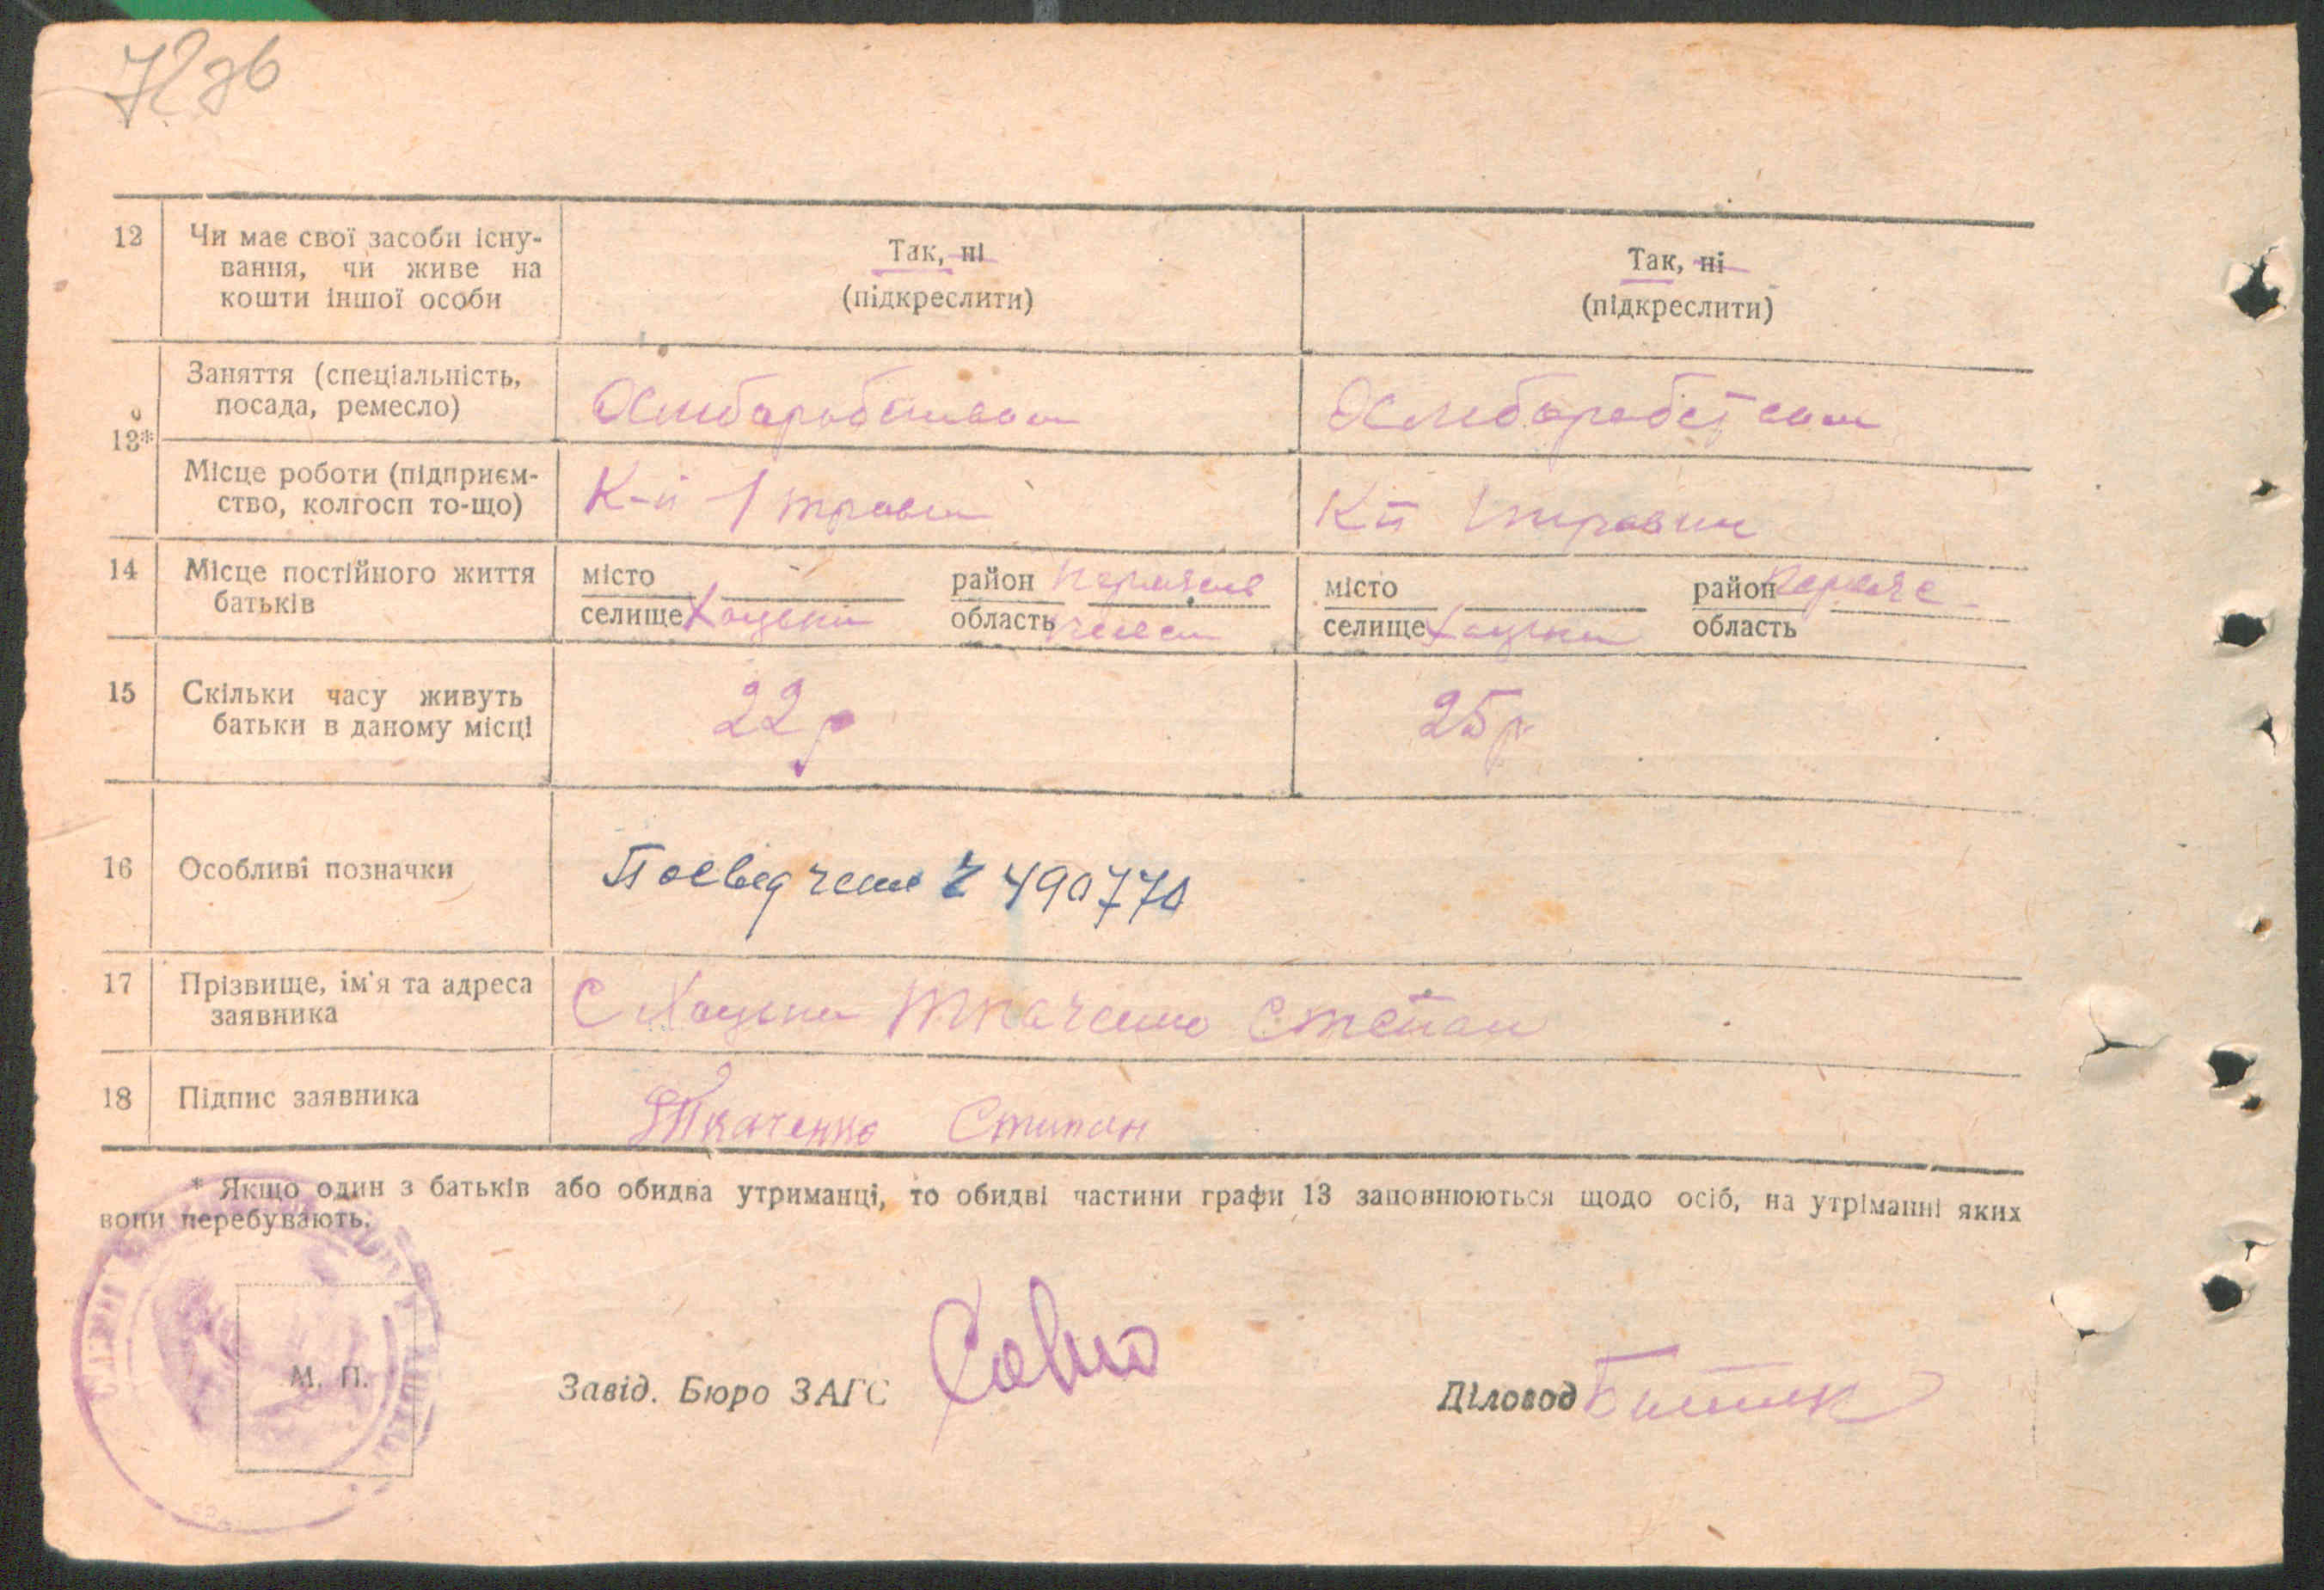 72зв
12
Чи має свої засоби існу-
вання, чи живе на
кошти іншої особи
Так, ні
(підкреслити)
Так, ні
(підкреслити)
13*
Заняття (спеціальність,
посада, ремесло)
Хлиборобством
Хлиборобством
Місце роботи (підприєм-
ство, колгосп то-що)
К-п 1 травня
К-п 1 травня
14
Місце постійного життя
батьків
місто
селище Хоцьки
район Переяслів
область
місто
селище Хоцьки
район
область
15
Скільки часу живуть
батьки в даному місці
22 р
25 р
16
Особливі позначки
490770
17
Прізвище, ім'я та адреса
заявника
С Хоцьки Ткаченко Степан
18
Підпис заявника
Ткаченко Степан
* Якщо один з батьків або обидва утриманці, то обидві частини графи 13 заповнюються щодо осіб, на утріманні яких
вони перебувають.
М. П.
Завід. Бюро ЗАГС
Діловод